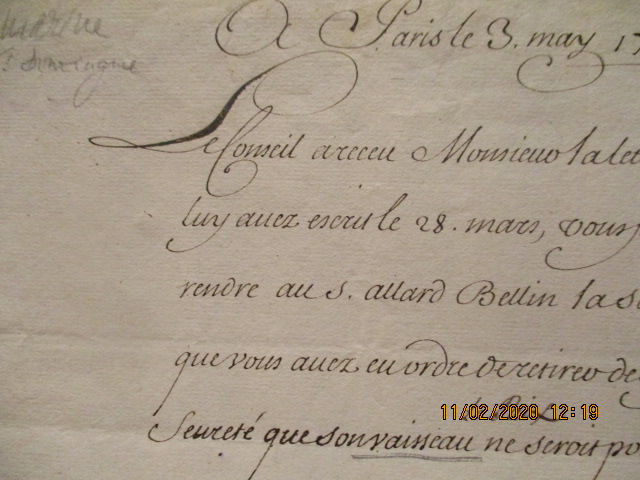 marine
A Paris le 3. may 17
Le Conseil a receu Monsieur la let
luy avez escrit le 28. mars, vous
rendre au S. allard Bellin la
que vous avez eu ordre de retirer de
Seureté que son vaisseau ne seroit po
11/02/2020 12:19